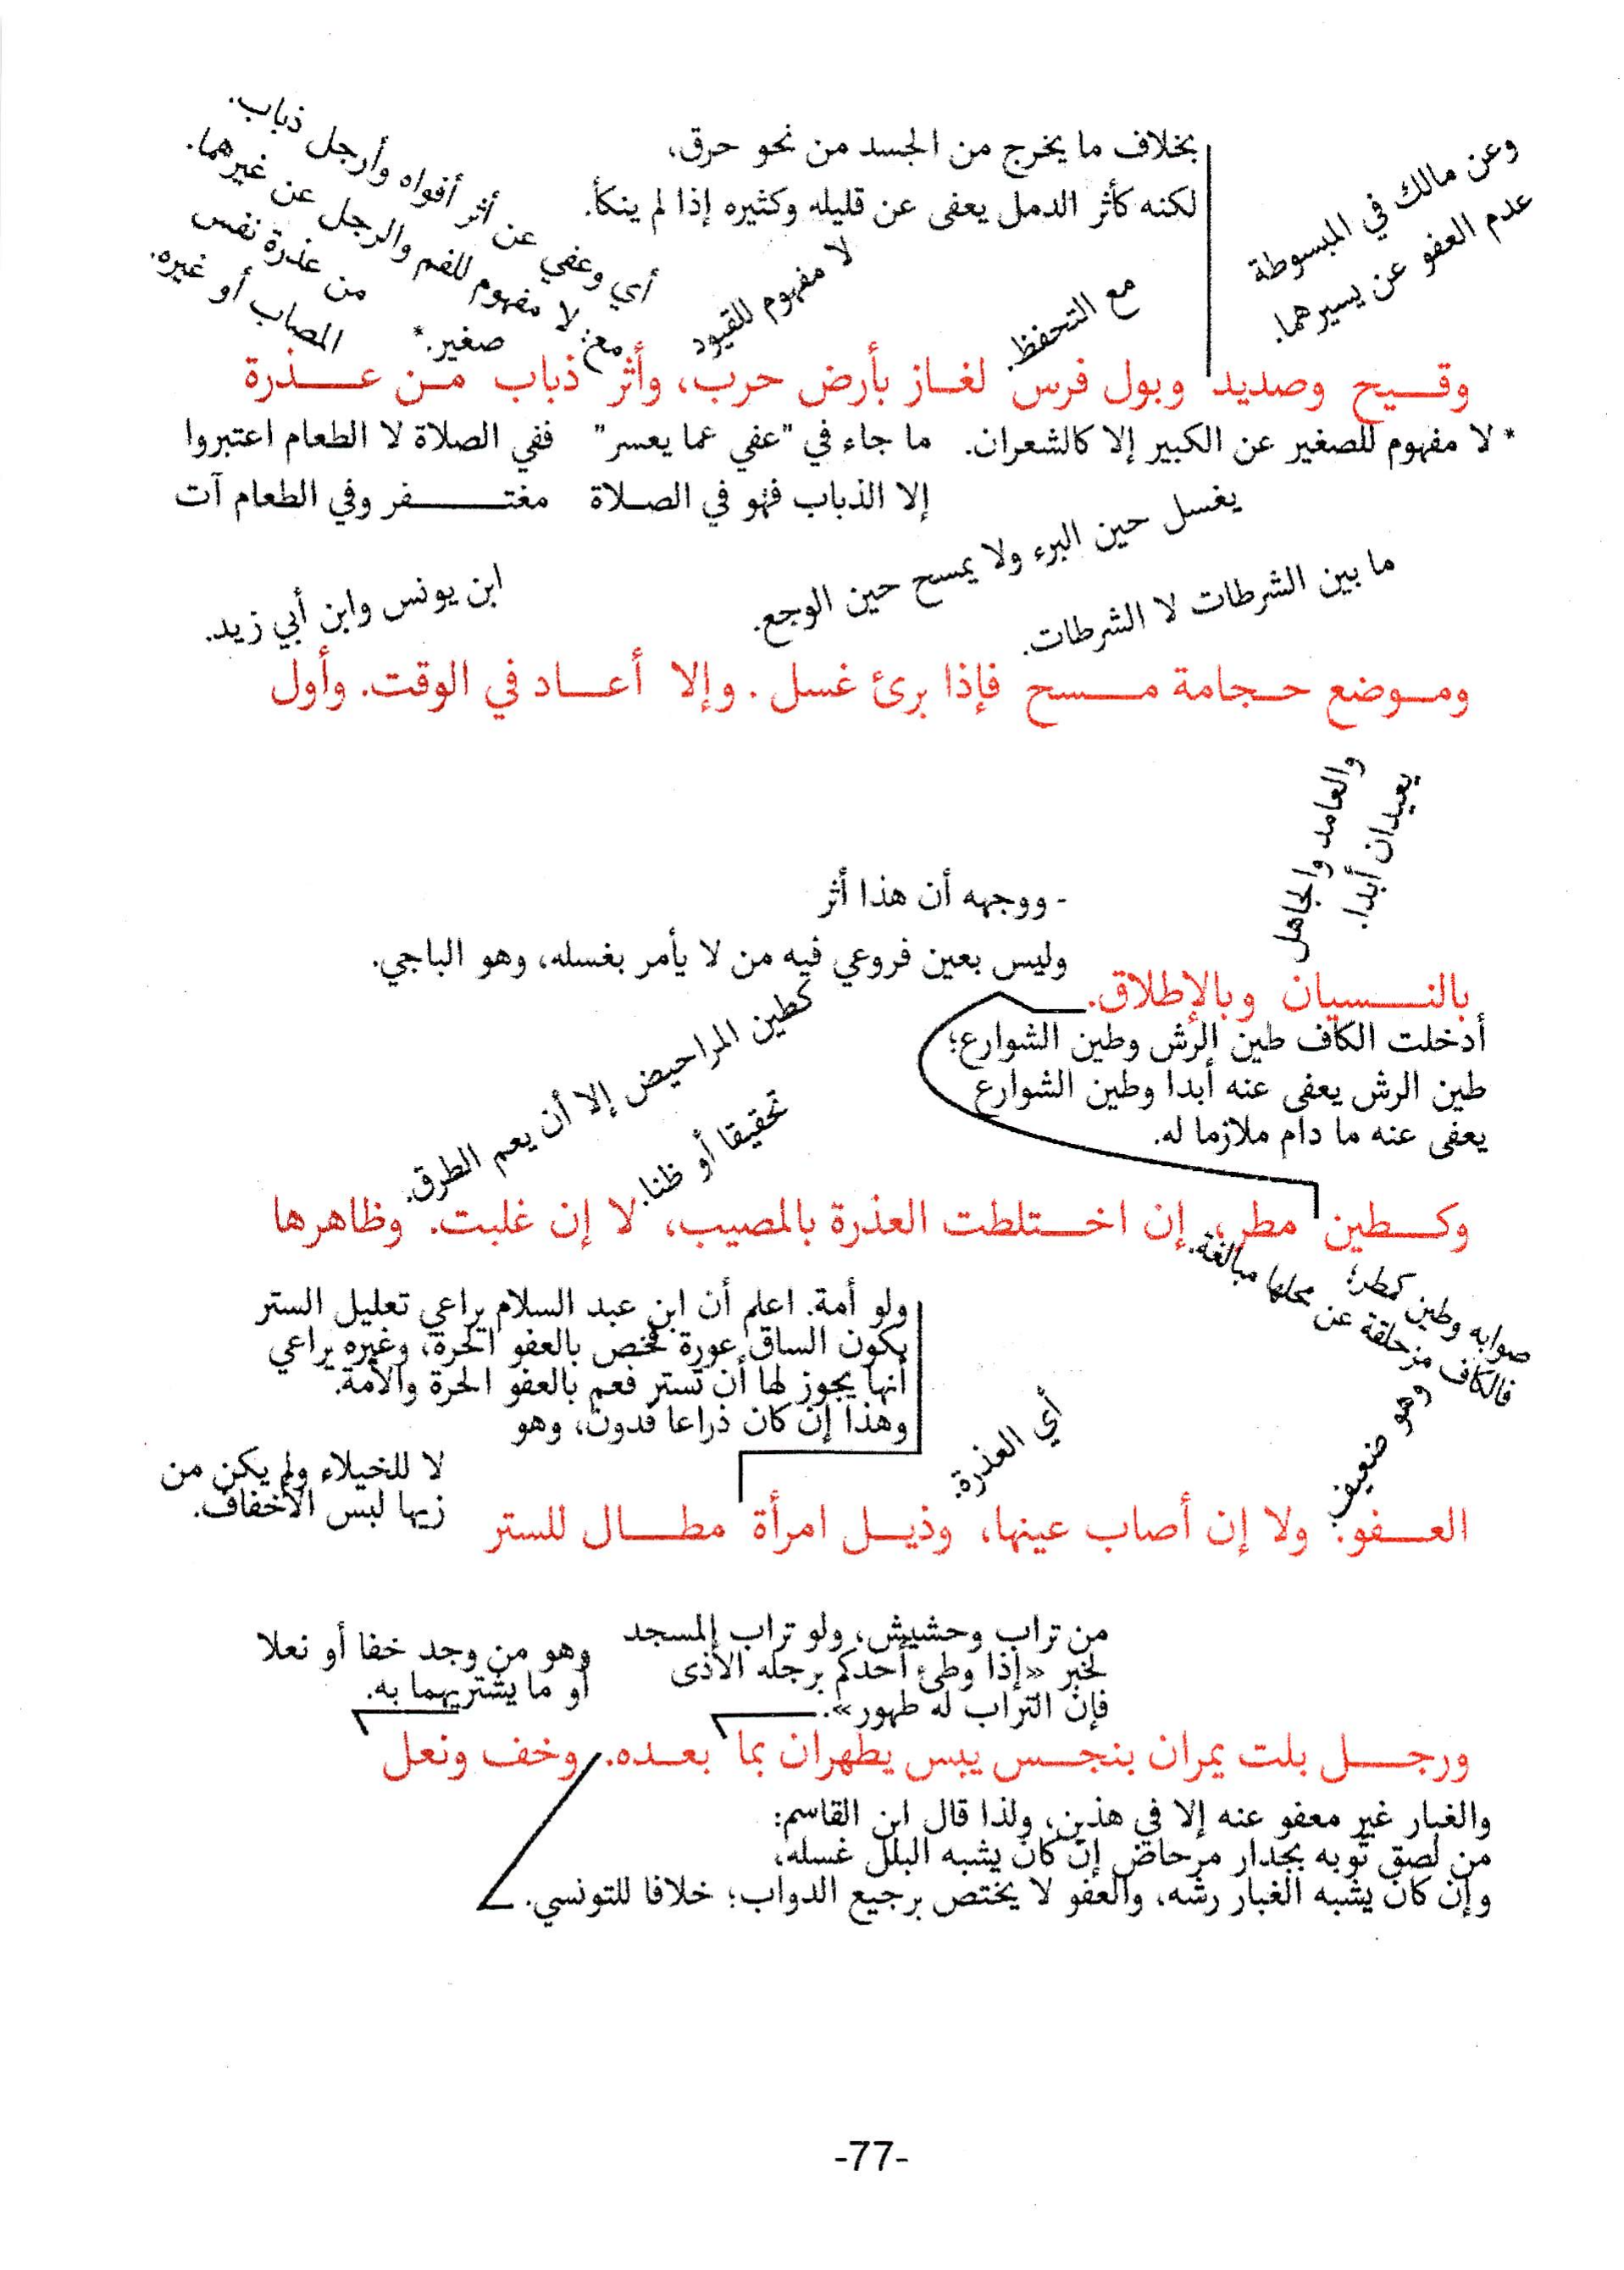 بخلاف ما يخرج من الجسد من نحو حرق،
لكنه كأثر الدمل يعفى عن قليله وكثيره إذا لم ينكأ.
وعن مالك في المبسوطة
عدم العفو عن يسيرهما.
مع التحفظ.
لا مفهوم للقيود
أي وعفي عن أثر أفواه وأرجل ذباب.
مغ: لا مفهوم للفم والرجل عن غيرهما.
من عذرة نفس
صغير.*
المصاب أو غيره.
وقيح وصديد وبول فرس لغاز بأرض حرب، وأثر ذباب من عذرة
* لا مفهوم للصغير عن الكبير إلا كالشعران. ما جاء في "عفي عما يعسر" ففي الصلاة لا الطعام اعتبروا
إلا الذباب فهو في الصلاة مغتفر وفي الطعام آت
ما بين الشرطات لا الشرطات.
يغسل حين البرء ولا يمسح حين الوجع.
ابن يونس وابن أبي زيد.
وموضع حجامة مسح فإذا برئ غسل. وإلا أعاد في الوقت. وأول
والعامد والجاهل
يعيدان أبدا.
- ووجهه أن هذا أثر
وليس بعين فروعي فيه من لا يأمر بغسله، وهو الباجي.
بالنسيان وبالإطلاق.
أدخلت الكاف طين الرش وطين الشوارع؛
طين الرش يعفى عنه أبدا وطين الشوارع
يعفى عنه ما دام ملازما له.
تحقيقا أو ظنا.
كطين المراحيض إلا أن يعم الطرق.
وكطين مطر، إن اختلطت العذرة بالمصيب، لا إن غلبت. وظاهرها
صوابه وطين كمطر؛
فالكاف مزحلقة عن محلها مبالغة.
ولو أمة. اعلم أن ابن عبد السلام يراعي تعليل الستر
بكون الساق عورة فخص بالعفو الحرة، وغيره يراعي
أنها يجوز لها أن تستر فعم بالعفو الحرة والأمة.
وهذا إن كان ذراعا فدون، وهو
لا للخيلاء ولم يكن من
زيها لبس الأخفاف.
وهو ضعيف.
أي العذرة.
العفو. ولا إن أصاب عينها، وذيل امرأة مطال للستر
من تراب وحشيش، ولو تراب المسجد
لخبر «إذا وطئ أحدكم برجله الأذى
فإن التراب له طهور».
وهو من وجد خفا أو نعلا
أو ما يشتريهما به.
ورجل بلت يمران بنجس يبس يطهران بما بعده. وخف ونعل
والغبار غير معفو عنه إلا في هذين، ولذا قال ابن القاسم:
من لصق ثوبه بجدار مرحاض إن كان يشبه البلل غسله،
وإن كان يشبه الغبار رشه، والعفو لا يختص برجيع الدواب؛ خلافا للتونسي.
-77-